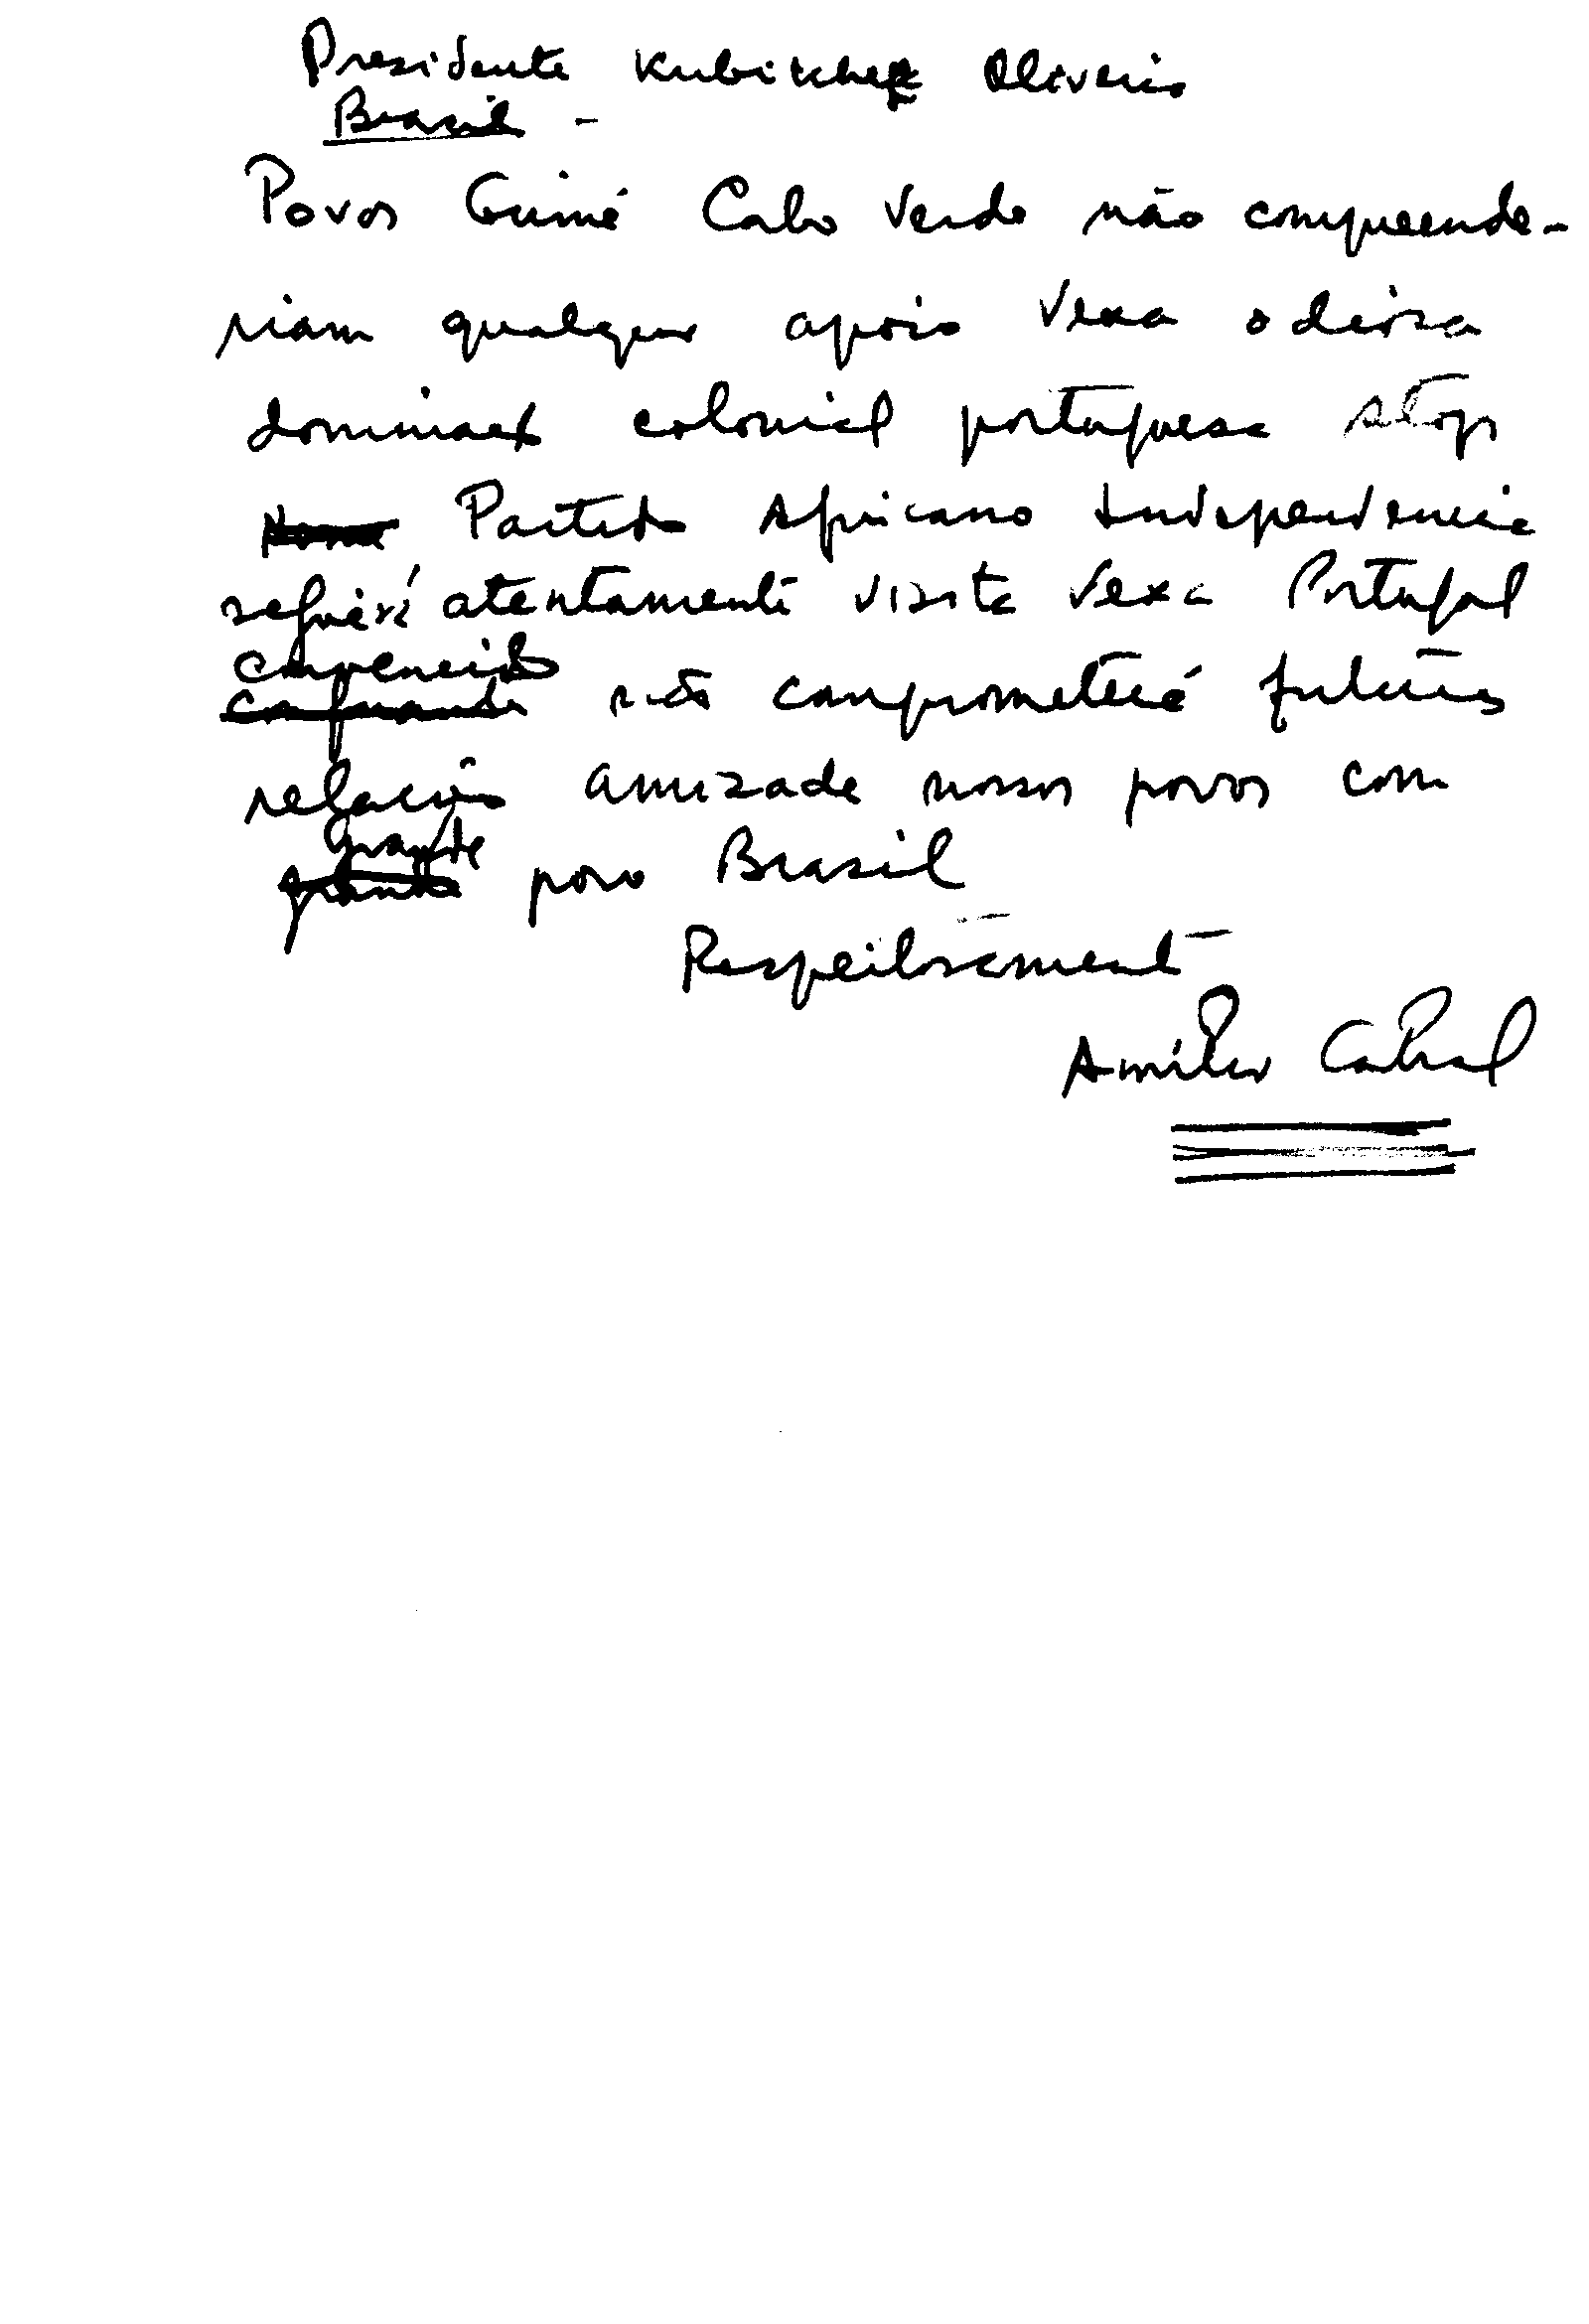 Presidente Kubitchek Oliveira
Brasil -
Povos Guiné Cabo Verde não compreende-
riam qualquer apoio Vexa odiosa
dominação colonial portuguesa stop
Nome Partido Africano Independencia
seguirá atentamente visita Vexa Portugal
convencido
confiando não comprometerá futuras
relações amizade nossos povos com
grande
grande povo Brasil
Respeitosamente
Amílcar Cabral